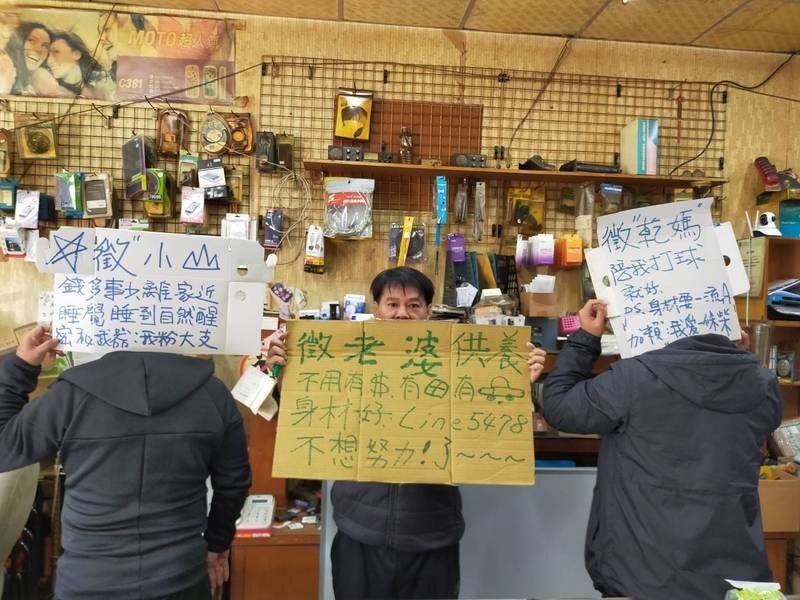 MOTO 超人氣
C381
"徵"小
錢多事少離家近
睡覺睡到自然醒
密秘武器:我粉大支
徵老婆供養
不用有 有田有
身材好:Line5478
不想努力!了~~~~
徵"乾媽"
陪我打球
就好.
PS.身材要一流A
加賴:我愛一